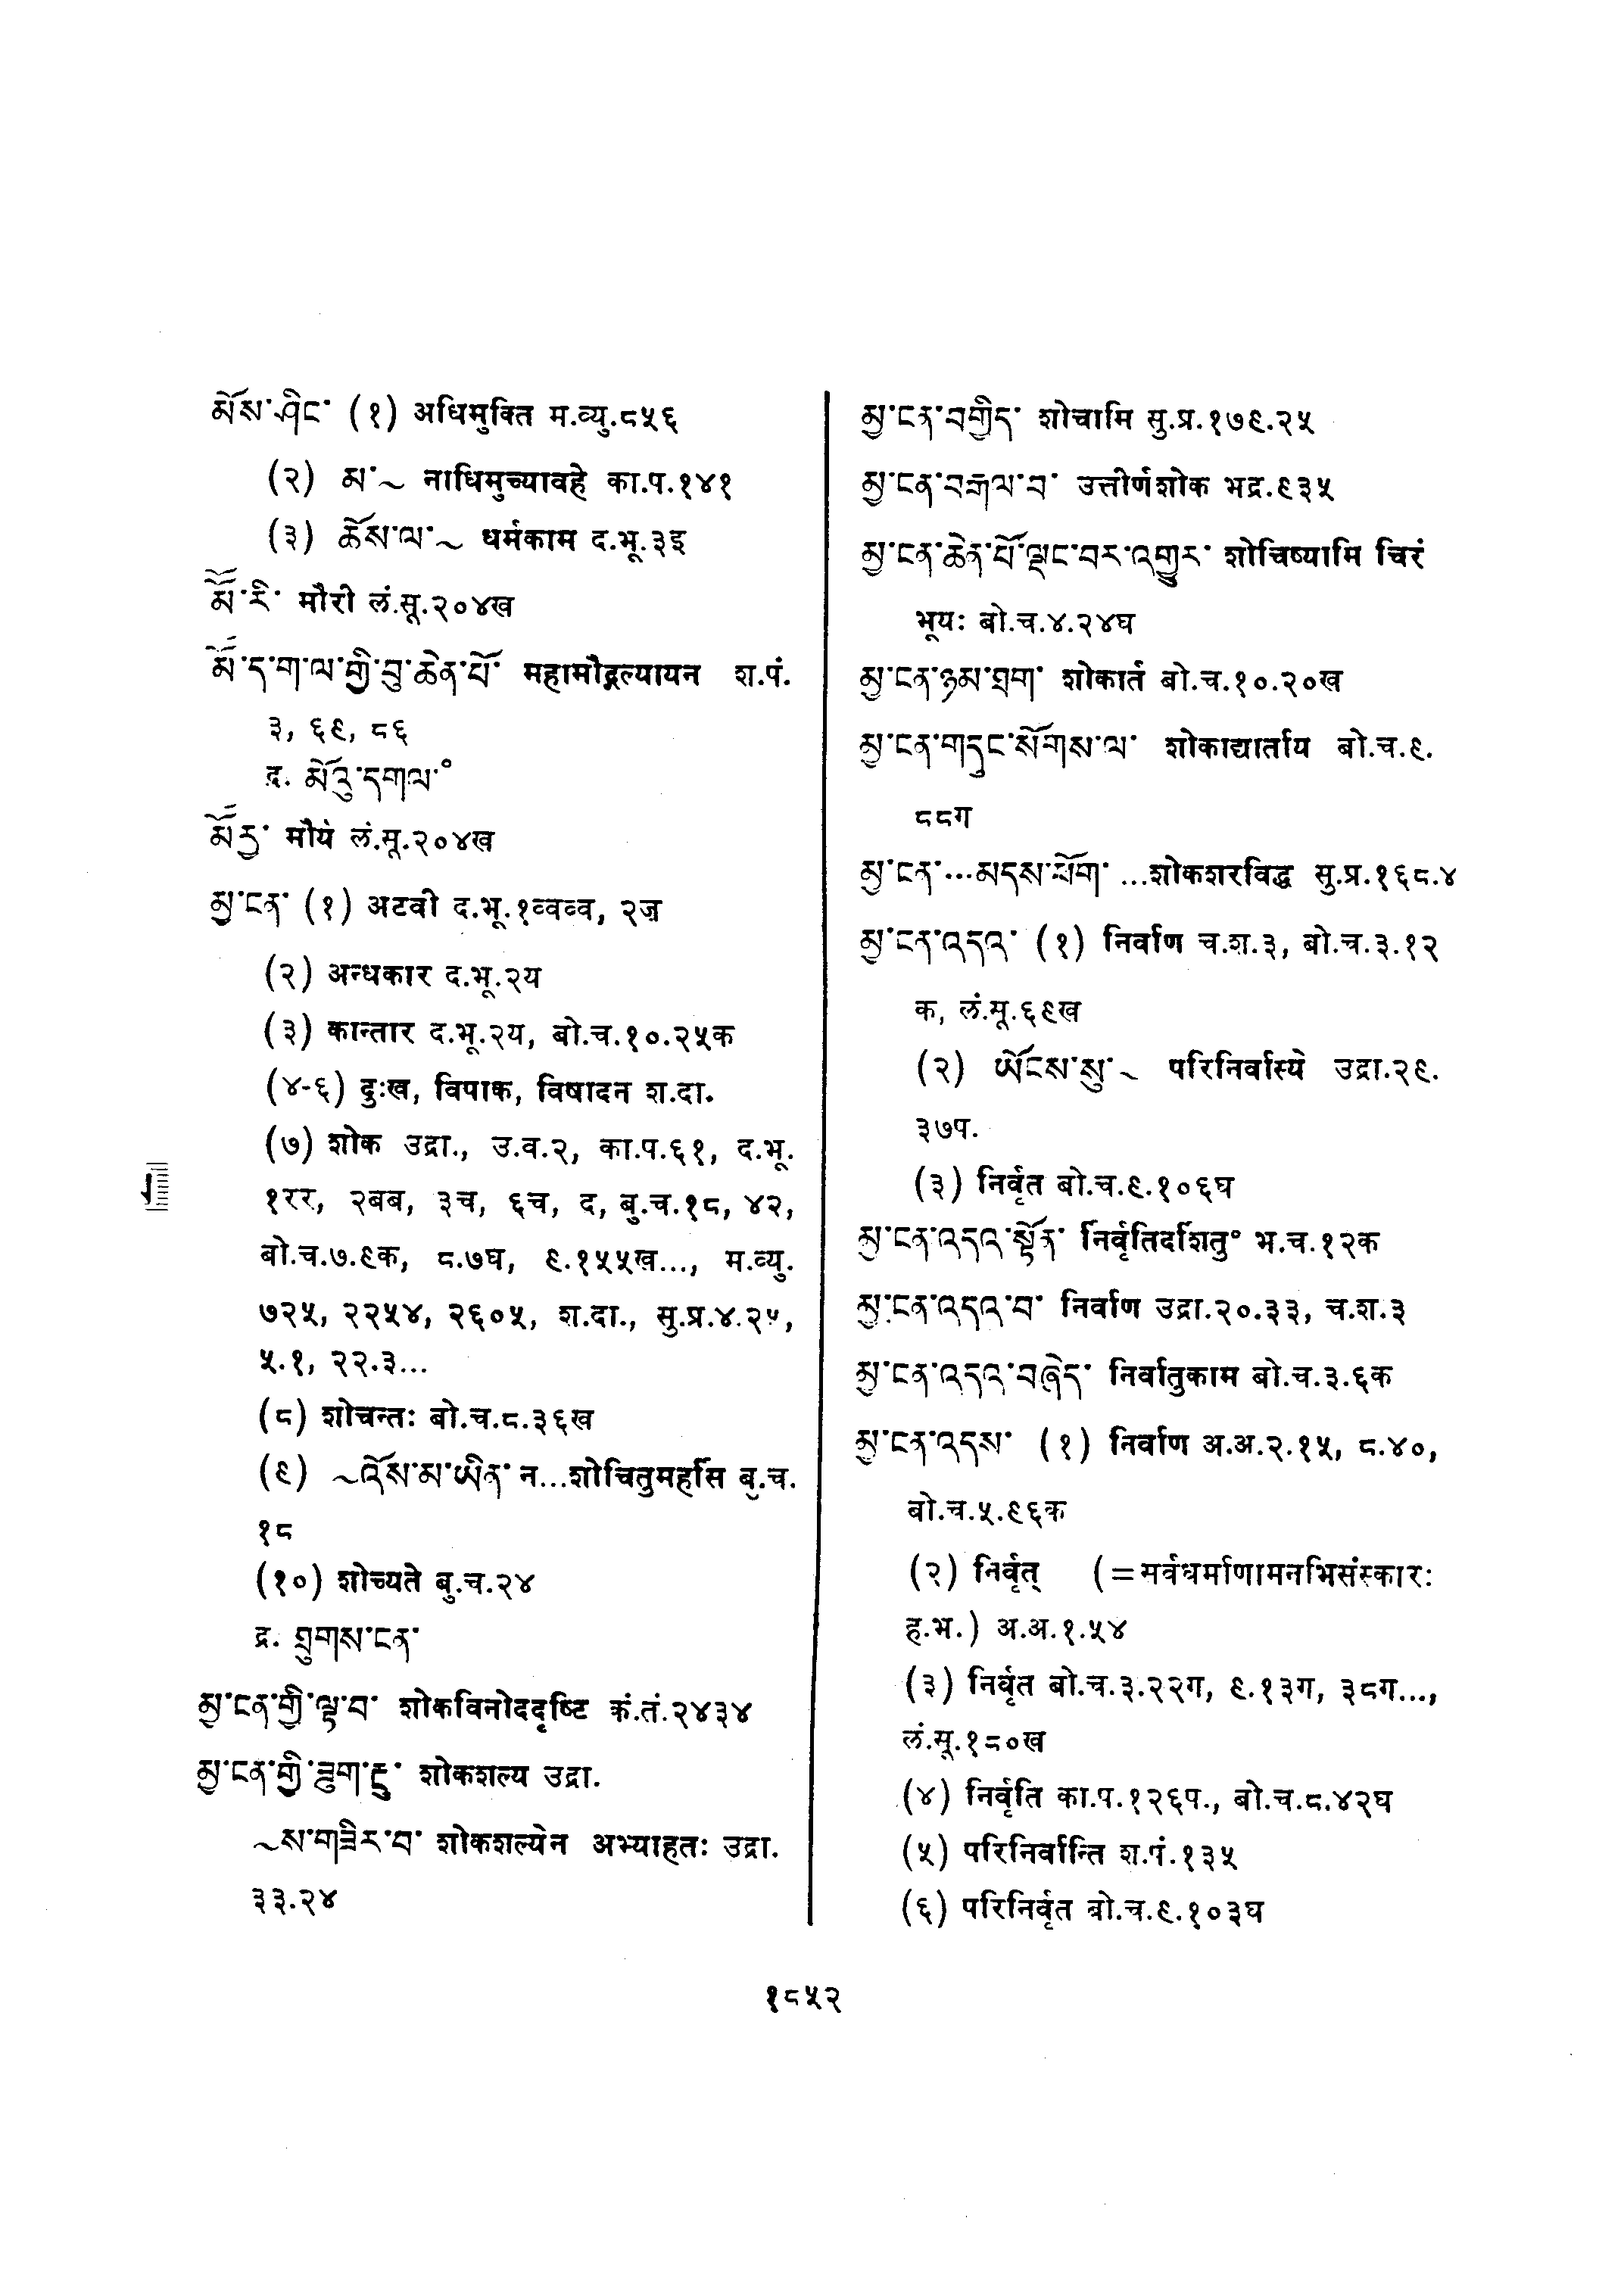 མོས་ཤིང་ (१) अधिमुक्ति म.व्यु.८५६
(२) མ་~ नाधिमुच्यावहे का.प.१४१
(३) ཆོས་ལ་~ धर्मकाम द.भू.३इ
མཽ་རི་ मौरी लं.सू.२०४ख
མཽ་ད་ག་ལ་གྱི་བུ་ཆེན་པོ་ महामौद्गल्यायन श.पं.
३, ६९, ८६
द्र. མོའུ་དགལ་°
མཽརྱ་ मौर्य लं.सू.२०४ख
མྱ་ངན་ (१) अटवी द.भू.१व्वव्व, २ज्ञ
(२) अन्धकार द.भू.२य
(३) कान्तार द.भू.२य, बो.च.१०.२५क
(४-६) दुःख, विपाक, विषादन श.दा.
(७) शोक उद्रा., उ.व.२, का.प.६१, द.भू.
१रर, २बब, ३च, ६च, द, बु.च.१८, ४२,
बो.च.७.९क, ८.७घ, ९.१५५ख..., म.व्यु.
७२५, २२५४, २६०५, श.दा., सु.प्र.४.२५,
५.१, २२.३...
(८) शोचन्तः बो.च.८.३६ख
(९) ~འོས་མ་ཡིན་ न...शोचितुमर्हसि बु.च.
१८
(१०) शोच्यते बु.च.२४
द्र. ཐུགས་ངན་
མྱ་ངན་གྱི་ལྟ་བ་ शोकविनोददृष्टि कं.तं.२४३४
མྱ་ངན་གྱི་ཟུག་རྔུ་ शोकशल्य उद्रा.
~ས་གཟིར་བ་ शोकशल्येन अभ्याहतः उद्रा.
३३.२४
མྱ་ངན་བགྱིད་ शोचामि सु.प्र.१७९.२५
མྱ་ངན་བརྒལ་བ་ उत्तीर्णशोक भद्र.९३५
མྱ་ངན་ཆེན་པོ་ལྡང་བར་འགྱུར་ शोचिष्यामि चिरं
भूयः बो.च.४.२४घ
མྱ་ངན་ཉམ་ཐག་ शोकार्त बो.च.१०.२०ख
མྱ་ངན་གདུང་སོགས་ལ་ शोकाद्यार्ताय बो.च.९.
८८ग
མྱ་ངན་...མདས་ཕོག་ ...शोकशरविद्ध सु.प्र.१६८.४
མྱ་ངན་འདའ་ (१) निर्वाण च.श.३, बो.च.३.१२
क, लं.सू.६९ख
(२) ཡོངས་སུ་~ परिनिर्वास्ये उद्रा.२९.
३७प.
(३) निर्वृत बो.च.९.१०६घ
མྱ་ངན་འདའ་སྟོན་ निर्वृतिदर्शितु° भ.च.१२क
མྱ་ངན་འདའ་བ་ निर्वाण उद्रा.२०.३३, च.श.३
མྱ་ངན་འདའ་བཞེད་ निर्वातुकाम बो.च.३.६क
མྱ་ངན་འདས་ (१) निर्वाण अ.अ.२.१५, ८.४०,
बो.च.५.९६क
(२) निर्वृत् (=सर्वधर्माणामनभिसंस्कारः
ह.भ.) अ.अ.१.५४
(३) निर्वृत बो.च.३.२२ग, ९.१३ग, ३८ग...,
लं.सू.१८०ख
(४) निर्वृति का.प.१२६प., बो.च.८.४२घ
(५) परिनिर्वान्ति श.पं.१३५
(६) परिनिर्वृत बो.च.९.१०३घ
१८५२